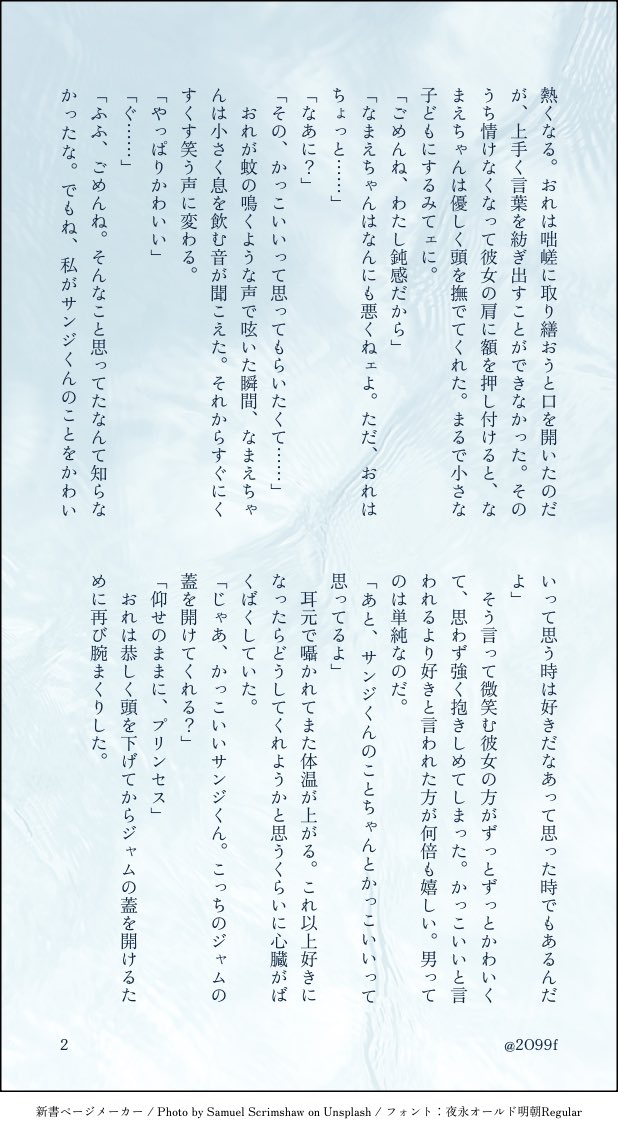 熱くなる。おれは咄嗟に取り繕おうと口を開いたのだ
が、上手く言葉を紡ぎ出すことができなかった。その
うち情けなくなって彼女の肩に額を押し付けると、な
まえちゃんは優しく頭を撫でてくれた。まるで小さな
子どもにするみてェに。
「ごめんね、わたし鈍感だから」
「なまえちゃんはなんにも悪くねェよ。ただ、おれは
ちょっと……」
「なあに？」
「その、かっこいいって思ってもらいたくて……」
　おれが蚊の鳴くような声で呟いた瞬間、なまえちゃ
んは小さく息を飲む音が聞こえた。それからすぐにく
すくす笑う声に変わる。
「やっぱりかわいい」
「ぐ……」
「ふふ、ごめんね。そんなこと思ってたなんて知らな
かったな。でもね、私がサンジくんのことをかわい
いって思う時は好きだなあって思った時でもあるんだ
よ」
　そう言って微笑む彼女の方がずっとずっとかわいく
て、思わず強く抱きしめてしまった。かっこいいと言
われるより好きと言われた方が何倍も嬉しい。男って
のは単純なのだ。
「あと、サンジくんのことちゃんとかっこいいって
思ってるよ」
　耳元で囁かれてまた体温が上がる。これ以上好きに
なったらどうしてくれようかと思うくらいに心臓がば
くばくしていた。
「じゃあ、かっこいいサンジくん。こっちのジャムの
蓋を開けてくれる？」
「仰せのままに、プリンセス」
　おれは恭しく頭を下げてからジャムの蓋を開けるた
めに再び腕まくりした。
2
@2099f
新書ページメーカー / Photo by Samuel Scrimshaw on Unsplash / フォント：夜永オールド明朝Regular